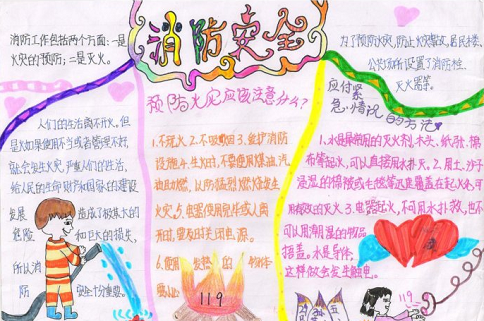 消防安全
消防工作包括两个方面:一是
火灾的预防;二是灭火。
为了预防火灾,防止火灾 居民楼、
公共场所设置了消防栓、
灭火器等。
人们的生活离不开火,但
是火如果使用不当或者管理不好,
就会发生火灾,严重 人们的生活,
给人民的生命财产和国家的建设
发展 造成了极大的
危险 和巨大的损失,
所以消
防 安全十分重要。
预防火灾应该注意什么?
1.不玩火 2.不吸烟 3.爱护消防
设施 4.生火时,不要使用煤油、汽
油助燃,以防猛烈燃烧发生
火灾。5.电器使用完毕或人离
开时,要及时关闭电源。
6.使用 发热 的 物体
要小心
119
应付紧
急情况的方法
1.水是常用的灭火剂,木头、纸张、棉
布等起火,可以直接用水扑灭。2.用土、沙子
浸湿的棉被或毛毯等迅速覆盖在起火处,可
有效的灭火 3.电器起火,不可用水扑救,也不
可以用潮湿的物品
捂盖。水是导体,
这样做会发生触电。
119